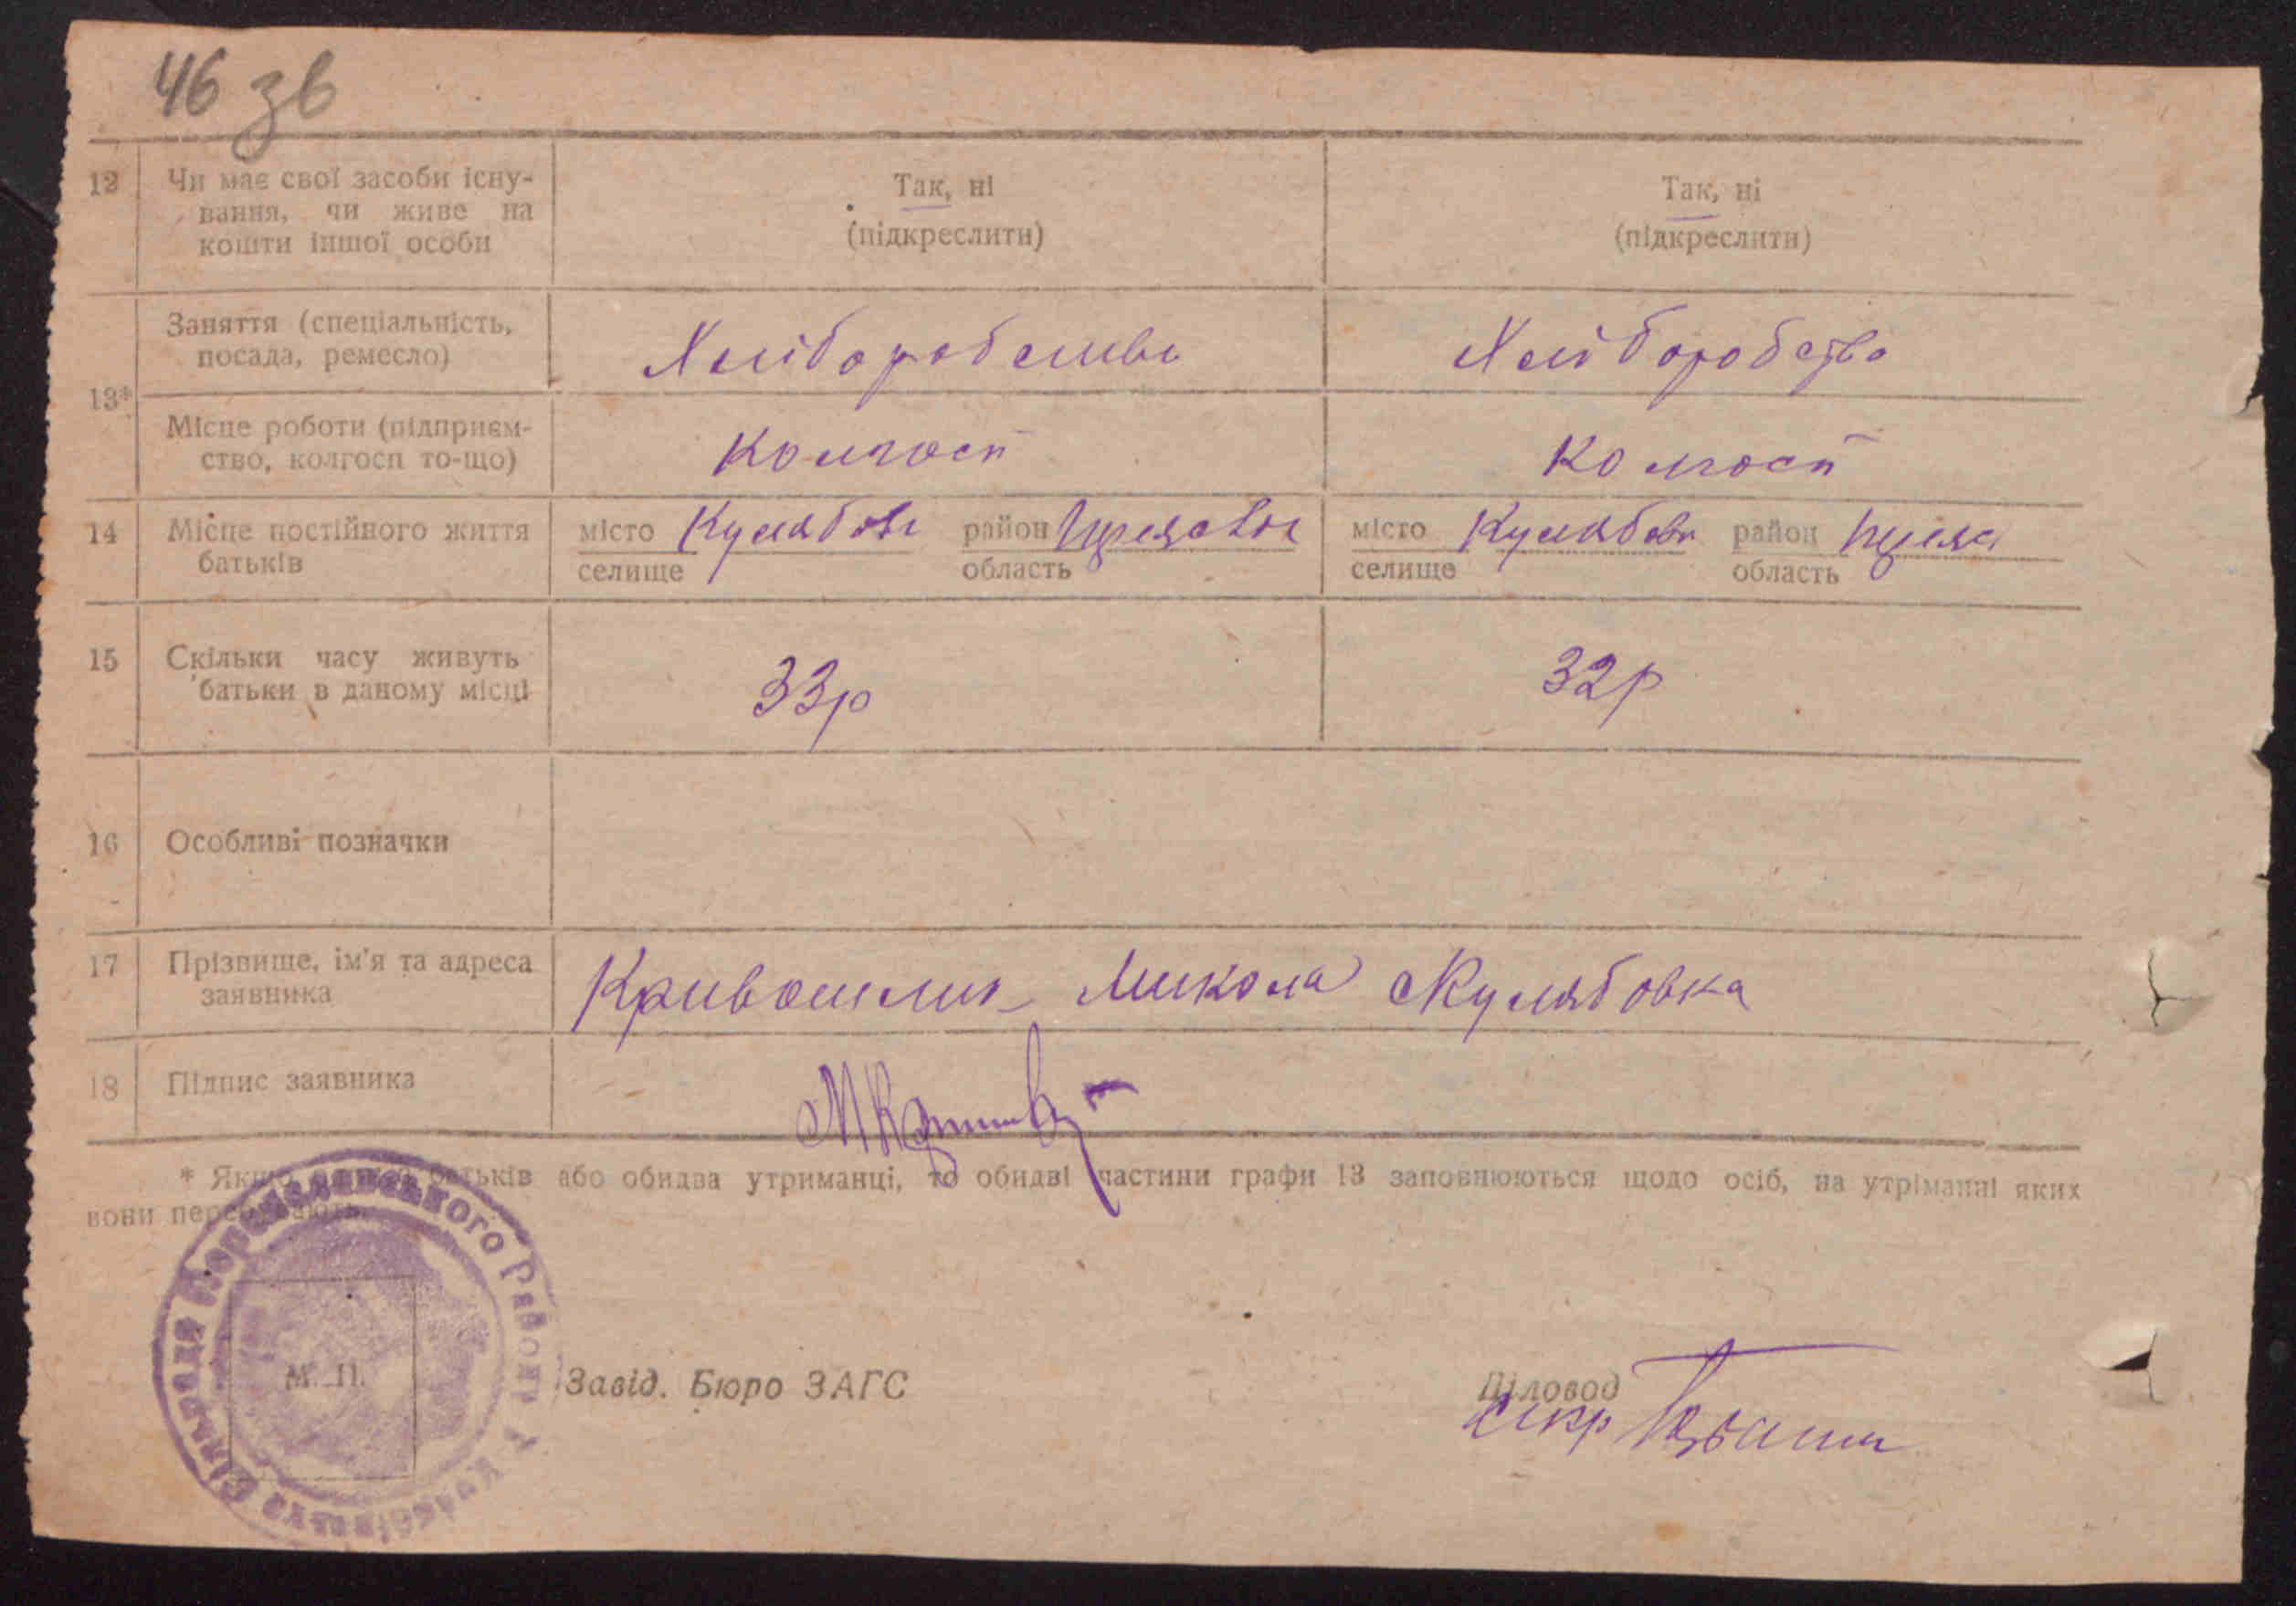 46 зв
12 Чи має свої засоби існу-
вання, чи живе на
кошти іншої особи
Так, ні
(підкреслити)
Так, ні
(підкреслити)
13*
Заняття (спеціальність,
посада, ремесло)
Хліборобство
Хліборобство
Місце роботи (підприєм-
ство, колгосп то-що)
Колгосп
Колгосп
14 Місце постійного життя
батьків
місто Кулябовк район
селище область
місто Кулябовк район
селище область
15 Скільки часу живуть
батьки в даному місці
33р
32р
16 Особливі позначки
17 Прізвище, ім'я та адреса
заявника
Кривошлик Микола Кулябовка
18 Підпис заявника
* Якщо батьків або обидва утриманці, то обидві частини графи 13 заповнюються щодо осіб, на утріманні яких
вони перебувають.
Сільрада Березанського Району
М. П.
Завід. Бюро ЗАГС
Діловод
секр